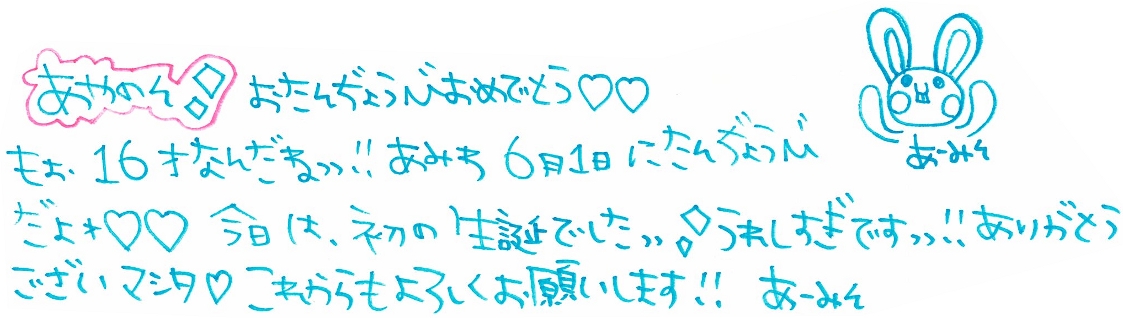 あやのん おたんぢょうびおめでとう♡♡
あーみん
もぉ、16才なんだねっっ!!あみも6月1日にたんぢょうび
だよ*♡♡ 今日は、初の生誕でしたっっ うれしすぎですっっ!!ありがとう
ございマシタ♡これからもよろしくお願いします!! あーみん